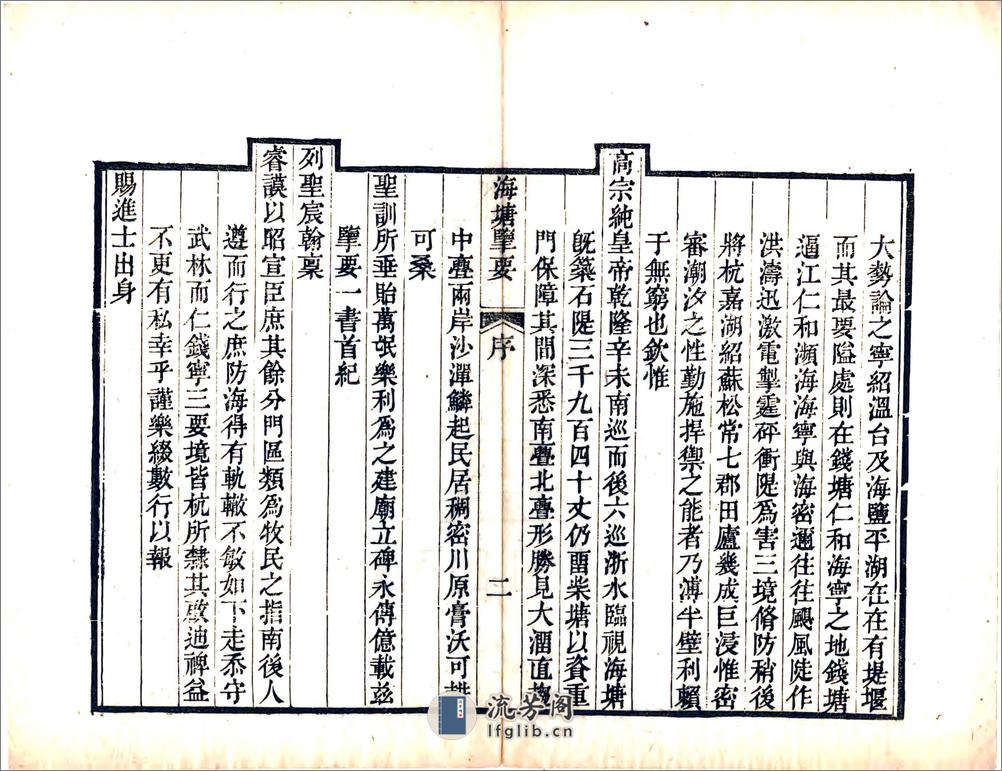 大勢論之寧紹溫台及海鹽平湖在在有堤堰
而其最要隘處則在錢塘仁和海寧之地錢塘
逼江仁和瀕海海寧與海密邇往往颶風陡作
洪濤迅激電掣霆砰衝隄爲害三境脩防稍後
將杭嘉湖紹蘇松常七郡田廬幾成巨浸惟密
審潮汐之性勤施捍禦之能者乃溥半壁利賴
于無窮也欽惟
高宗純皇帝乾隆辛未南巡而後六巡浙水臨視海塘
旣築石隄三千九百四十丈仍畱柴塘以資重
門保障其間深悉南亹北亹形勝見大溜直趨
海塘擥要
序
二
中亹兩岸沙潬鱗起民居稠密川原膏沃可耕
可桑
聖訓所垂貽萬氓樂利爲之建廟立碑永傳億載茲
擥要一書首紀
列聖宸翰稟
睿謨以昭宣臣庶其餘分門區類爲牧民之指南後人
遵而行之庶防海得有軌轍不敏如下走忝守
武林而仁錢寧三要境皆杭所隸其啟迪裨益
不更有私幸乎謹樂綴數行以報
賜進士出身
流芳阁
lfglib.cn